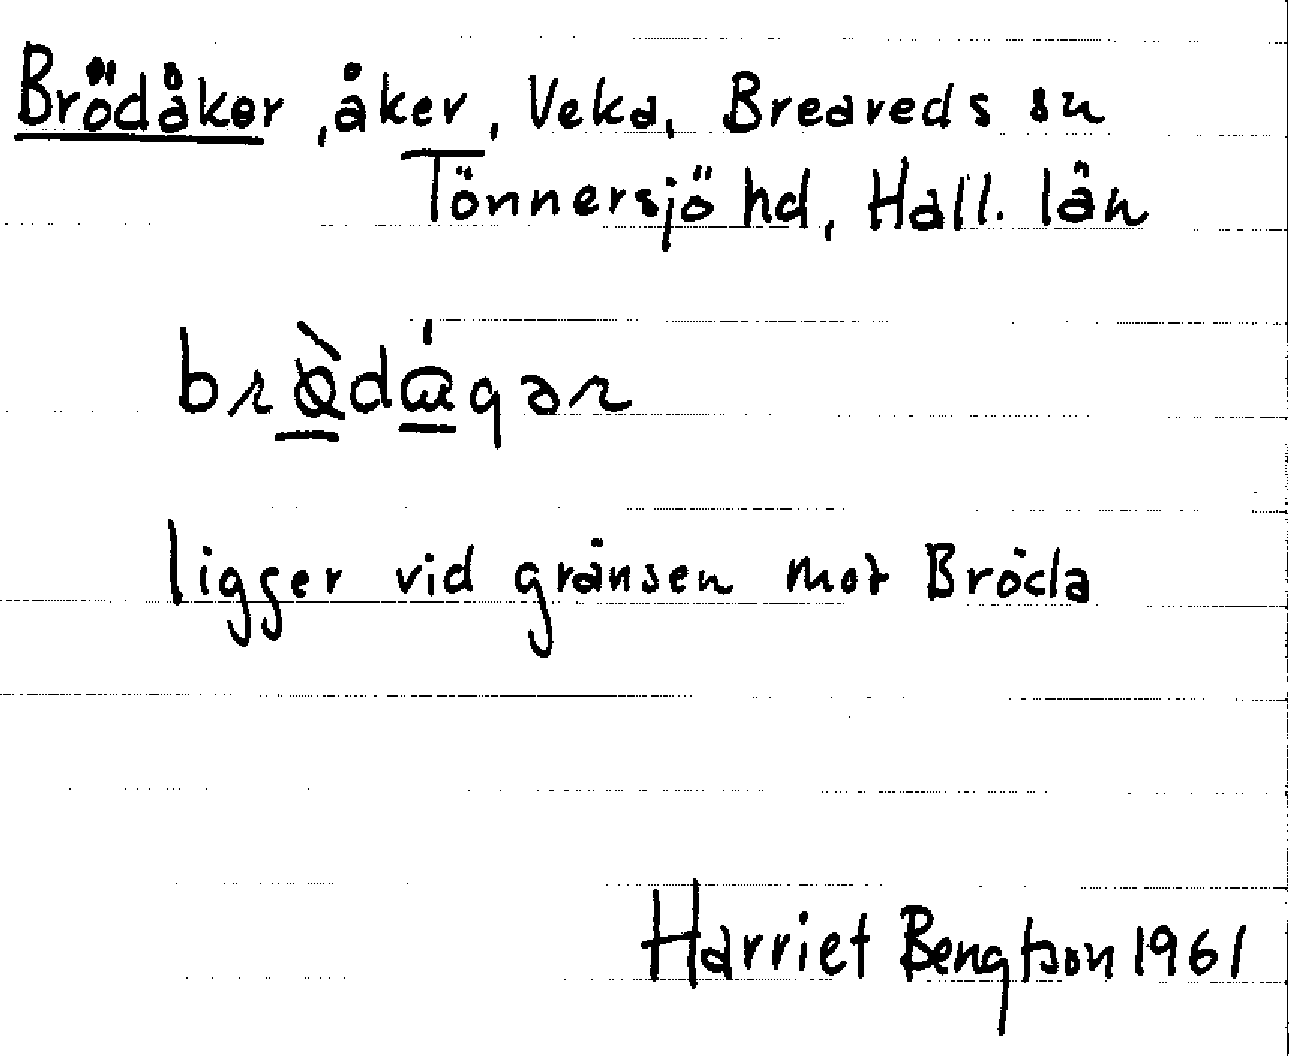 Brödåker, åker, Veka, Breareds sn
Tönnersjö hd, Hall. län
ligger vid gränsen mot Bröda
Harriet Bengtson 1961